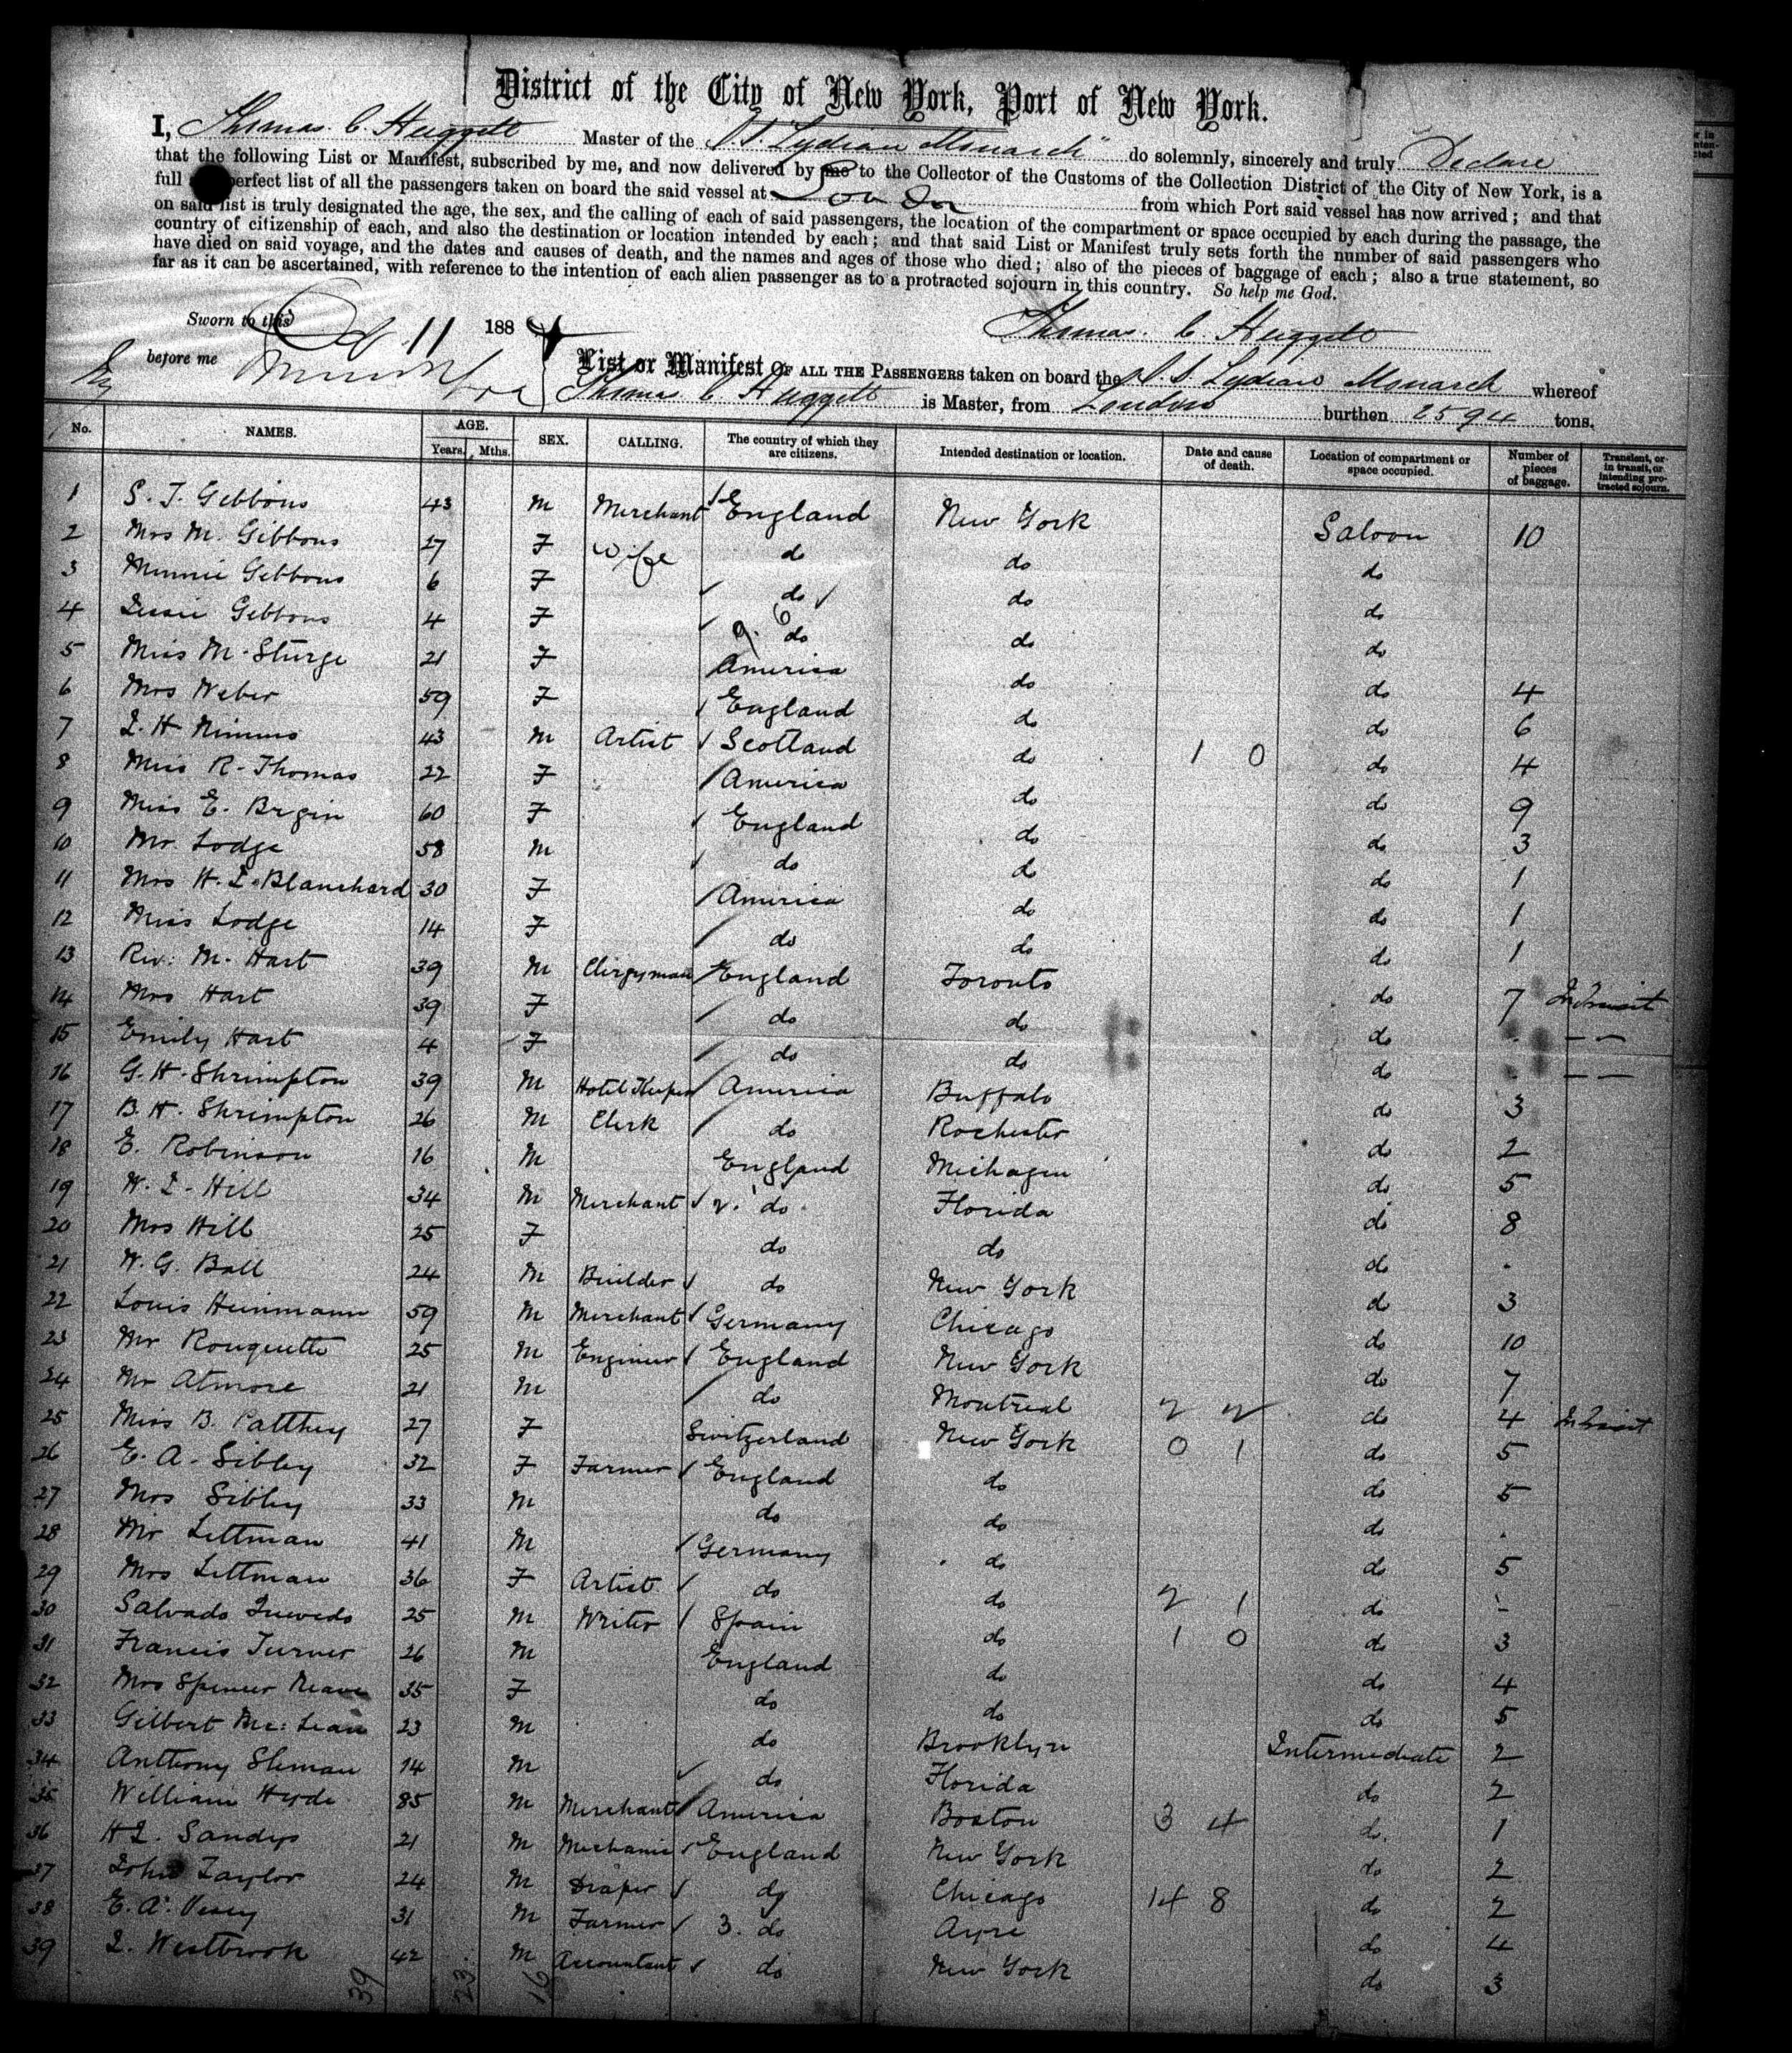 District of the City of New York, Port of New York.
I, Thomas C. Huggett Master of the S.S. "Lydian Monarch" do solemnly, sincerely and truly Declare
that the following List or Manifest, subscribed by me, and now delivered by me to the Collector of the Customs of the Collection District of the City of New York, is a
full perfect list of all the passengers taken on board the said vessel at London from which Port said vessel has now arrived; and that
on said list is truly designated the age, the sex, and the calling of each of said passengers, the location of the compartment or space occupied by each during the passage, the
country of citizenship of each, and also the destination or location intended by each; and that said List or Manifest truly sets forth the number of said passengers who
have died on said voyage, and the dates and causes of death, and the names and ages of those who died; also of the pieces of baggage of each; also a true statement, so
far as it can be ascertained, with reference to the intention of each alien passenger as to a protracted sojourn in this country. So help me God.
Sworn to this 11 188 Thomas. C. Huggett
before me
List or Manifest OF ALL THE PASSENGERS taken on board the S S Lydian Monarch whereof
Thomas C Huggett is Master, from London burthen 2594 tons.
No. NAMES. AGE. Years. Mths. SEX. CALLING. The country of which they are citizens. Intended destination or location. Date and cause of death. Location of compartment or space occupied. Number of pieces of baggage. Transient, or in transit, or intending protracted sojourn.
1 S. J. Gibbons 43 M Merchant England New York Saloon 10
2 Mrs M. Gibbons 27 F Wife do do do
3 Minnie Gibbons 6 F do do do
4 Gibbons 4 F do do do
5 Miss M. Sturge 21 F America do do 4
6 Mrs Weber 59 F England do do 6
7 J. H Nimmo 43 M Artist Scotland do 1 0 do 4
8 Miss R. Thomas 22 F America do do 9
9 Miss E. Brgin 60 F England do do 3
10 Mr. Lodge 58 M do do do 1
11 Mrs H. J. Blanchard 30 F America do do 1
12 Miss Lodge 14 F do do do 1
13 Rev: M. Hart 39 M Clergyman England Toronto do 7 In Transit
14 Mrs Hart 39 F do do do - — —
15 Emily Hart 4 F do do do - — —
16 G. H. Shrimpton 39 M Hotel Keeper America Buffalo do 3
17 B. H. Shrimpton 26 M Clerk do Rochester do 2
18 E. Robinson 16 M England Michagen do 5
19 W. J. Hill 34 M Merchant do Florida do 8
20 Mrs Hill 25 F do do do -
21 W. G. Ball 24 M Builder do New York do 3
22 Louis Heinmann 59 M Merchant Germany Chicago do 10
23 Mr Rouquette 25 M Engineer England New York do 7
24 Mr Atmore 21 M do Montreal 2 2 do 4 In Transit
25 Miss B. Patthey 27 F Switzerland New York 0 1 do 5
26 E. A. Sibley 32 F Farmer England do do 5
27 Mrs Sibley 33 M do do do .
28 Mr Littman 41 M Germany do do 5
29 Mrs Littman 36 F Artist do do 2 1 do -
30 Salvado Quevedo 25 M Writer Spain do 1 0 do 3
31 Francis Turner 26 M England do do 4
32 Mrs Spencer Neave 35 F do do do 5
33 Gilbert Mc: Lean 23 M do Brooklyn Intermediate 2
34 Anthony 14 M do Florida do 2
35 William Hyde 85 M Merchant America Boston 3 4 do. 1
36 H J. Sandys 21 M Mechanic England New York do 2
37 John Taylor 24 M Draper do Chicago 14 8 do 2
38 E. A. Vesey 31 M Farmer 3. do Ayre do 4
39 J. Westbrook 42 M Accountant do New York do 3
39 23 16